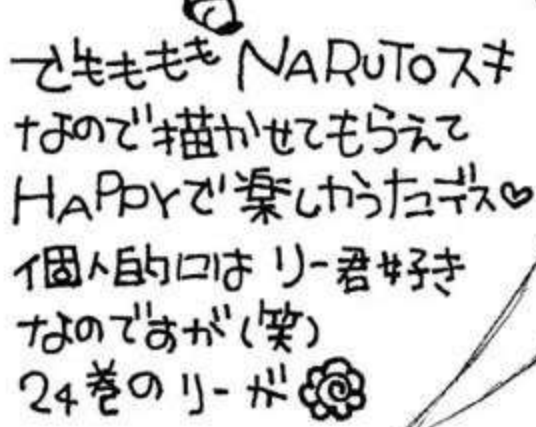 でもももも NARUTOスキ
なので描かせてもらえて
HAPPYで楽しかったデス♡
個人的には リー君好き
なのですが(笑)
24巻のリーが